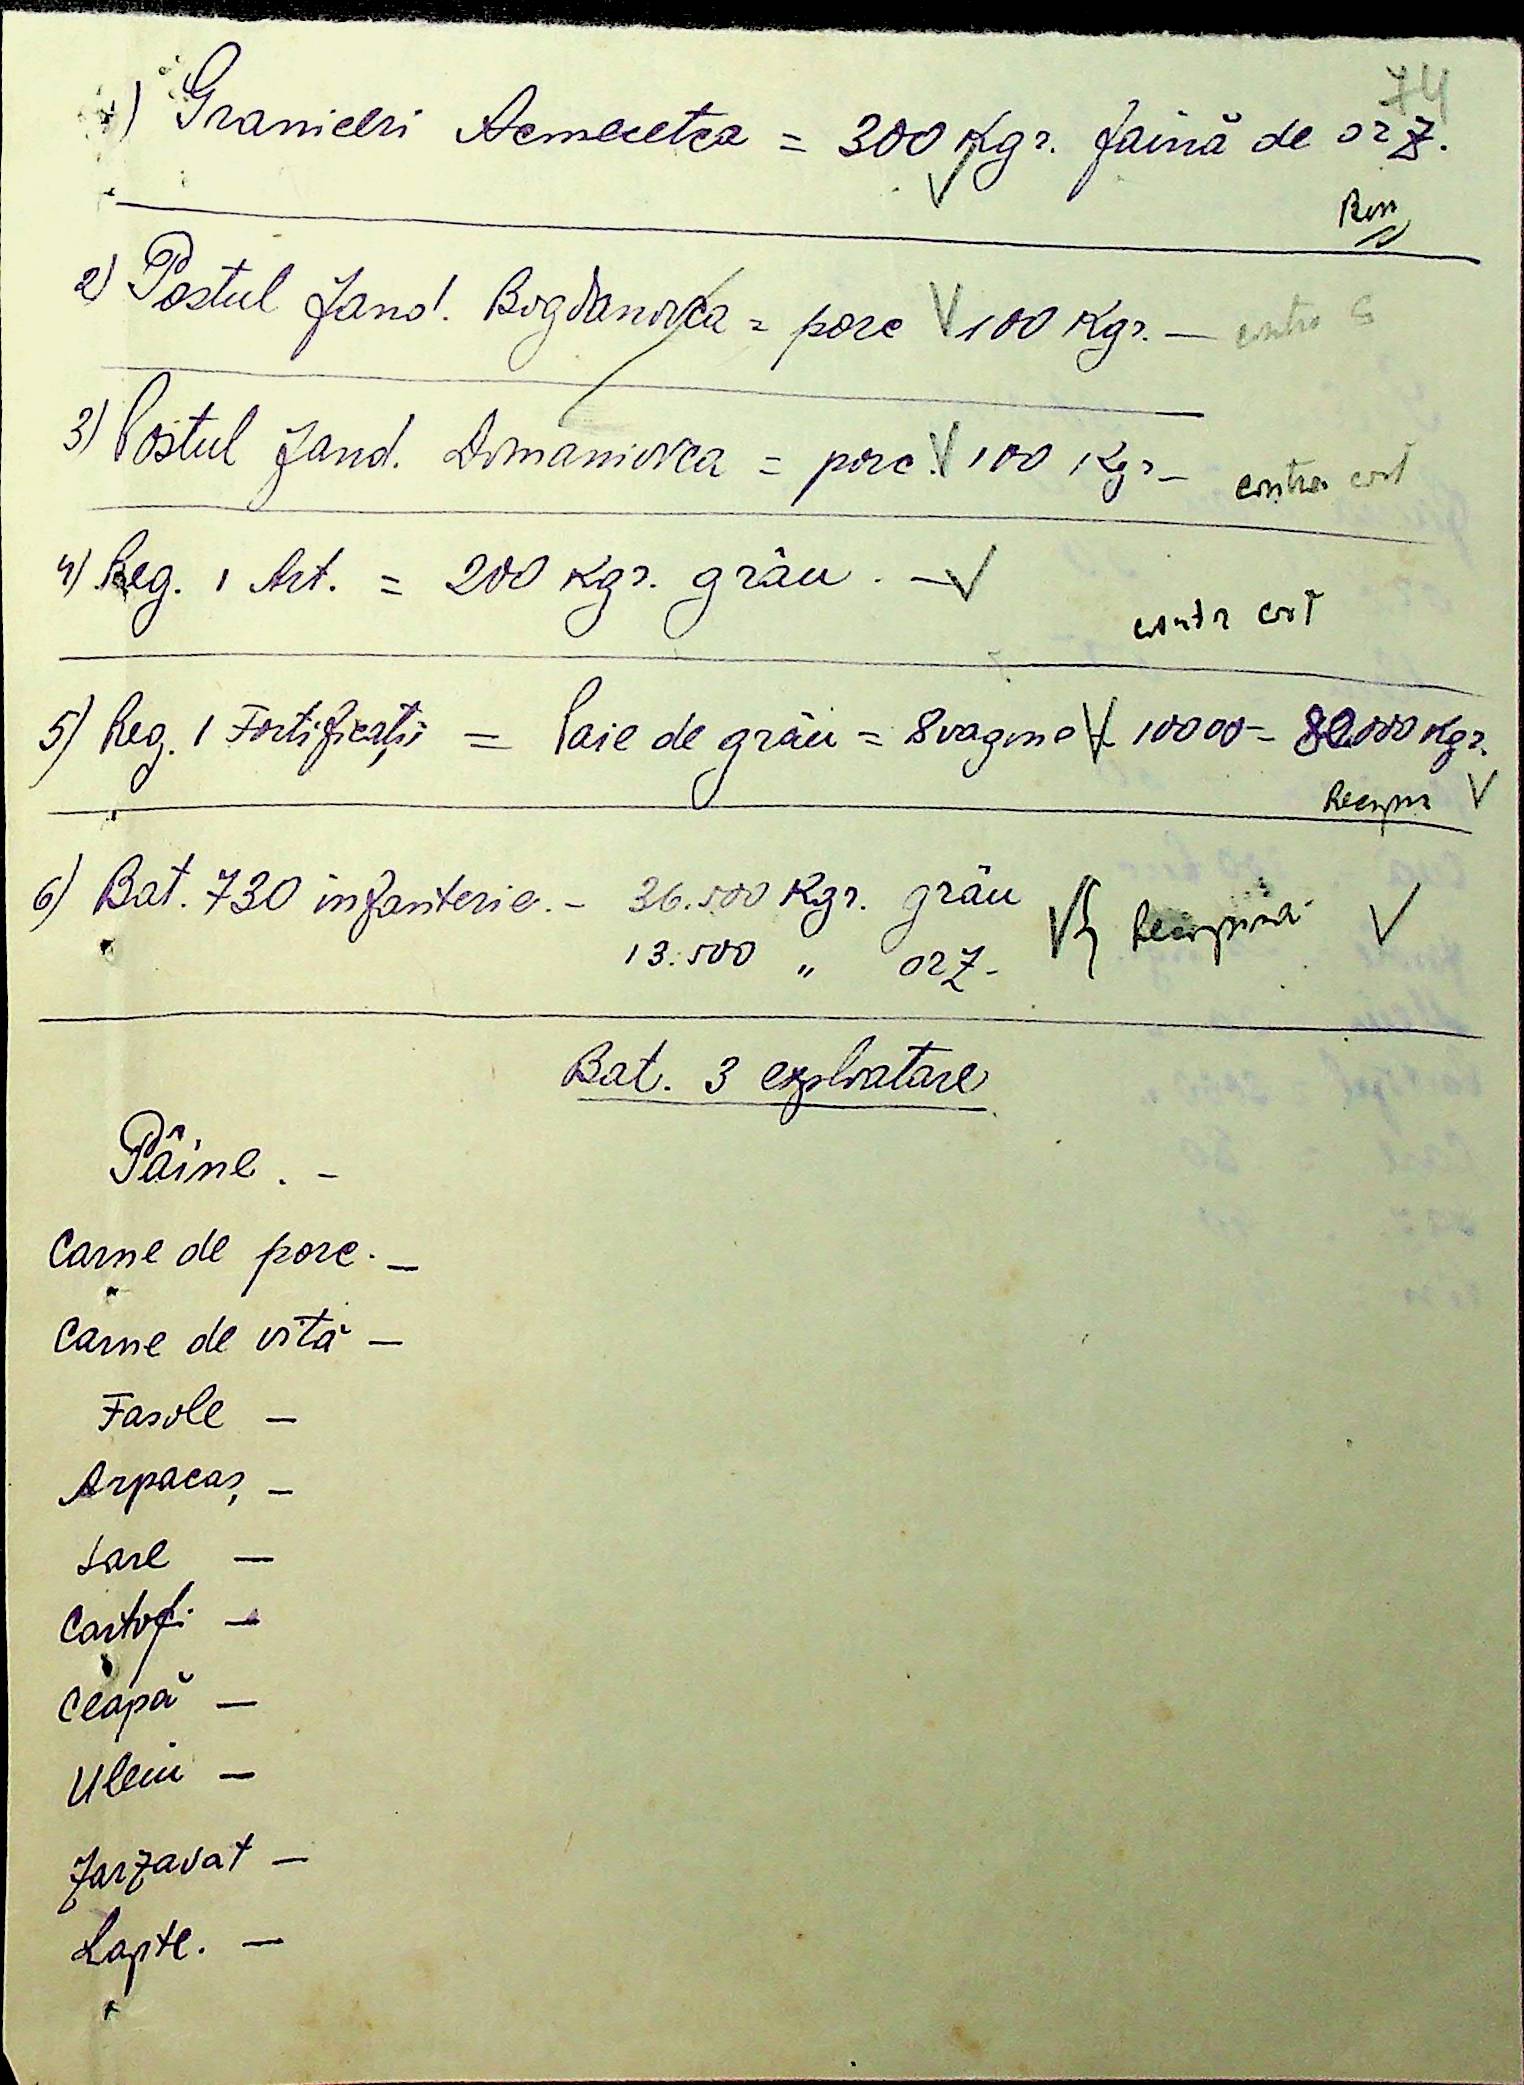 74
1) Graniceri Acmecetca = 300 Kgr. faină de orz.
2) Postul Jand. Bogdanovca = porc 100 Kgr. — contra
3) Postul Jand. Domaniovca = porc. 100 Kgr — contra cost
4) Reg. 1 Art. = 200 Kgr. grâu. —
contra cost
5) Reg. 1 Fortificații = Paie de grâu = 8 vagone 10000 = 80.000 Kgr.
6) Bat. 730 infanterie. - 36.500 Kgr. grâu
13.500 " orz -
Bat. 3 exploatare
Pâine. -
Carne de porc. -
Carne de vită -
Fasole -
Arpacaș -
Sare -
Cartofi -
Ceapă -
Uleiu -
Zarzavat -
Lapte. -